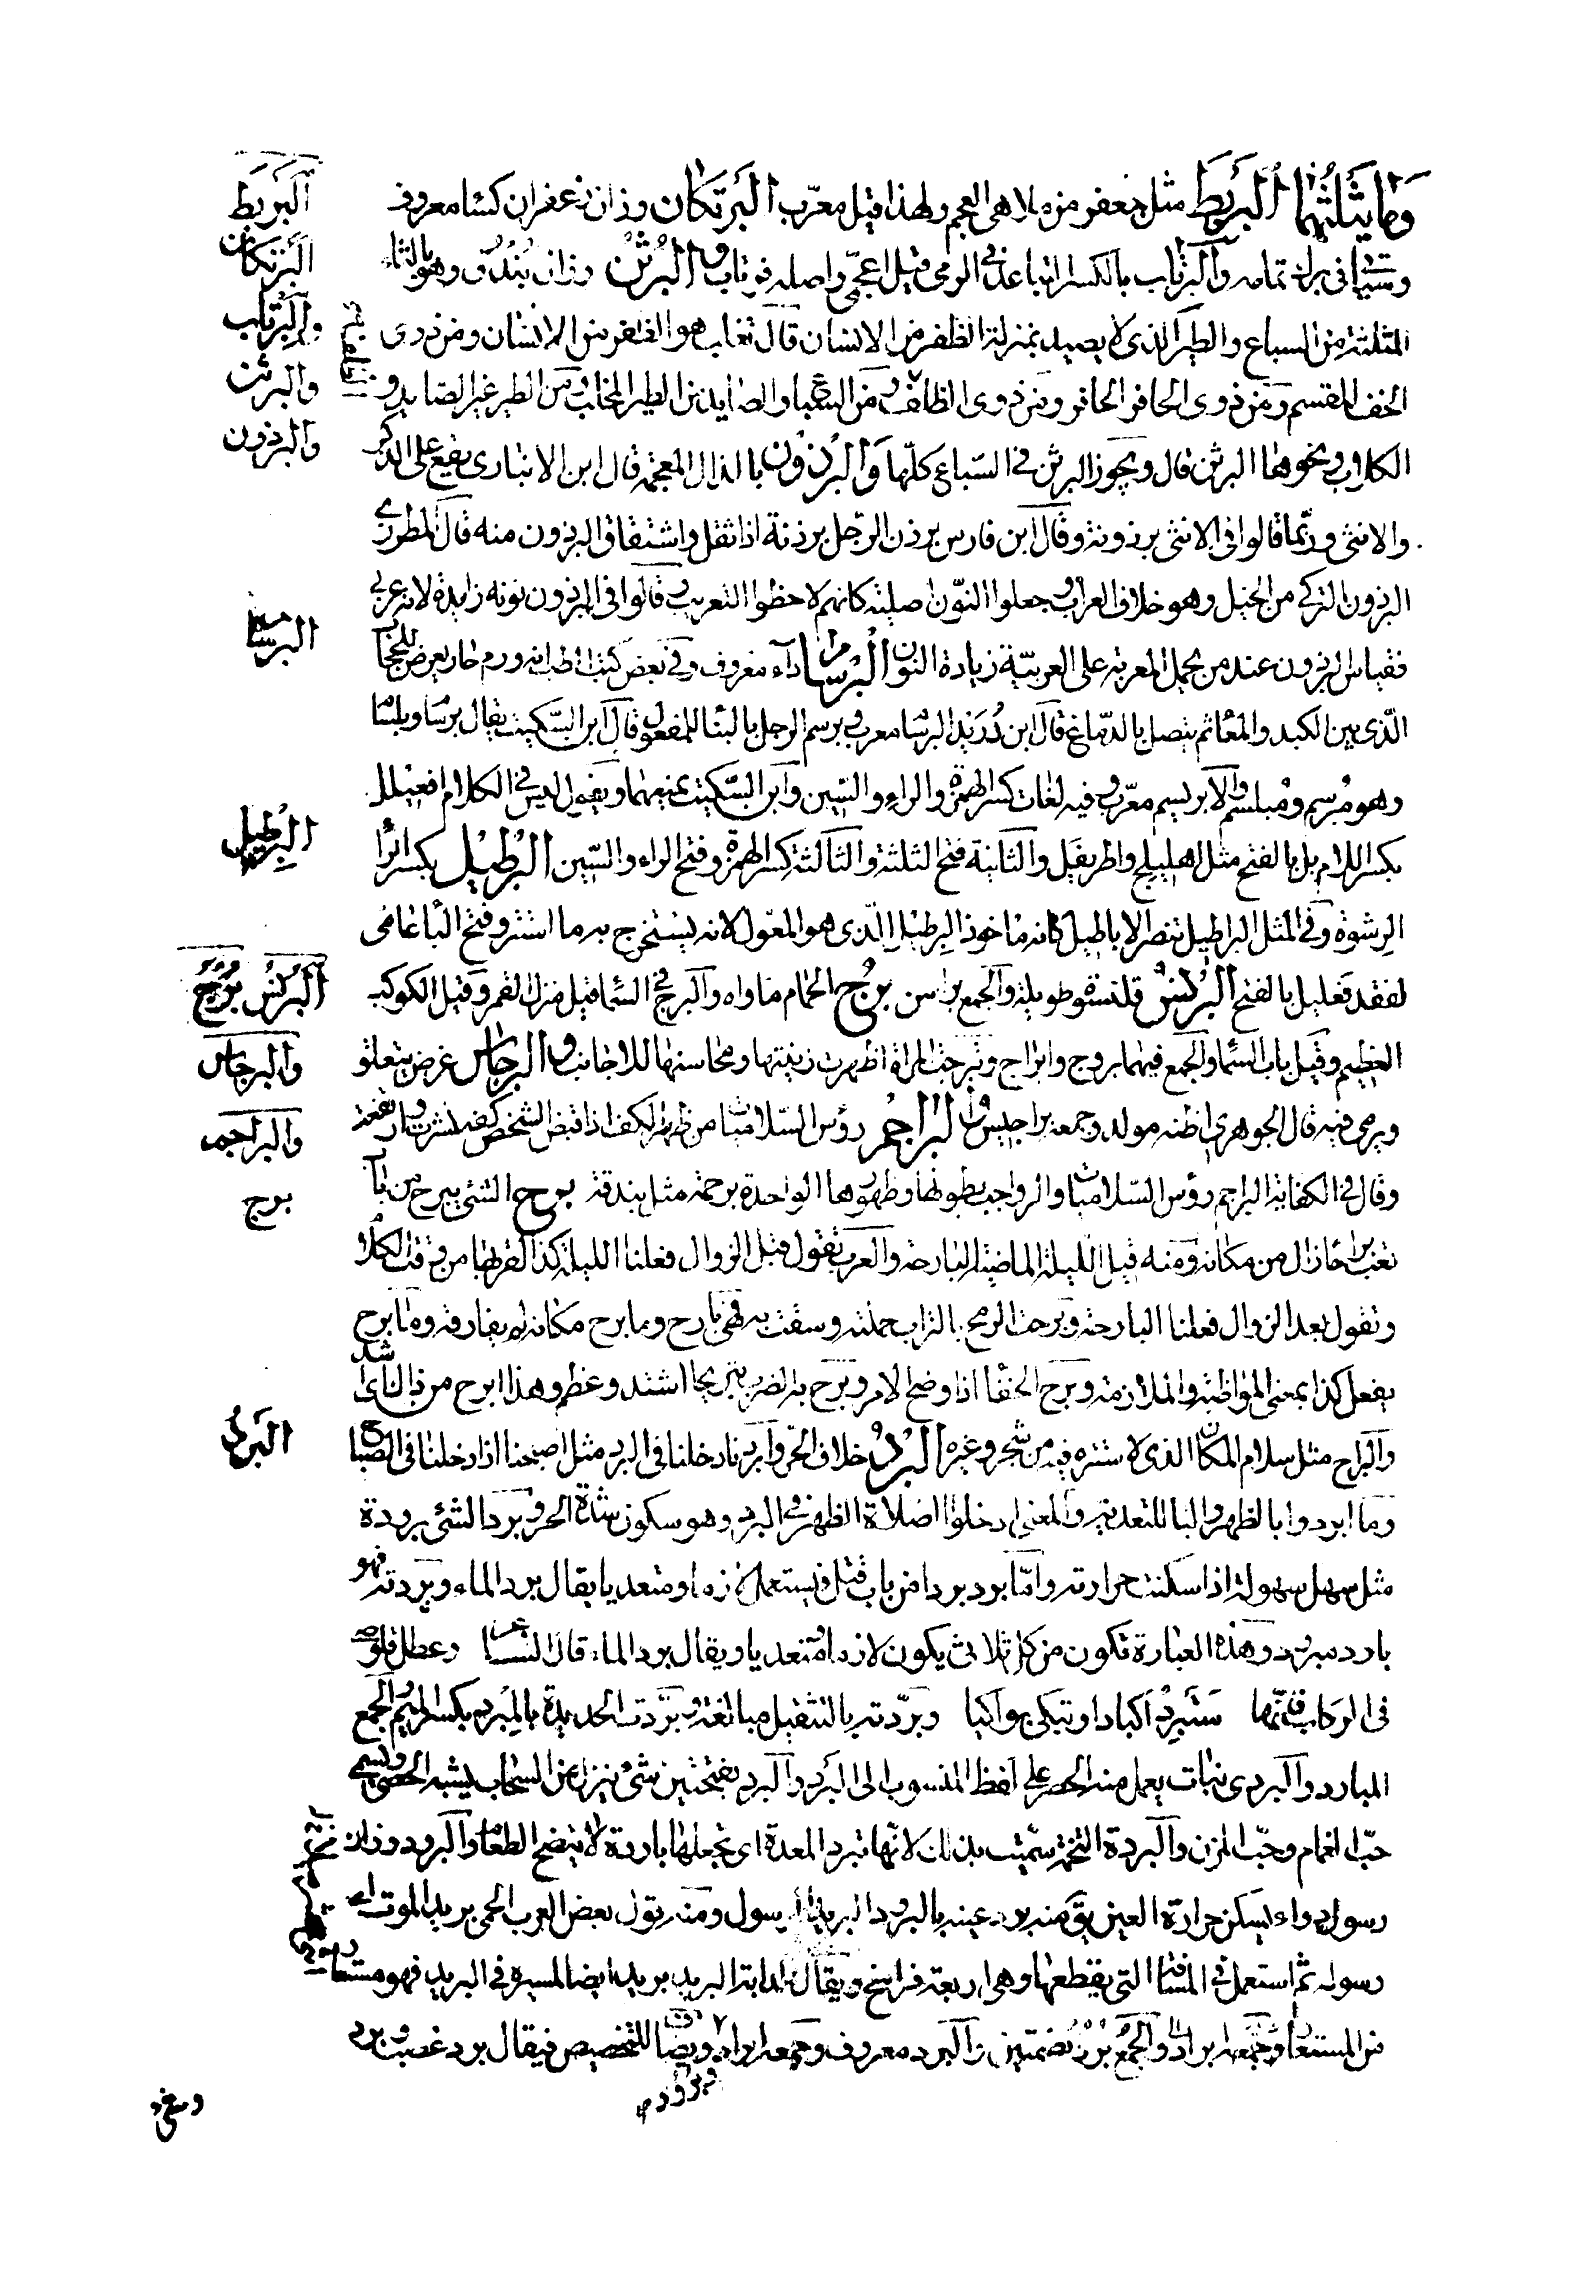 وما يثلثهما البربط مثل جعفر من ملاهى العجم ولهذا قيل معرّب البرتكان وزان زعفران كسا معروف
وسياتى فى برك تمامه والبرثاب بالكسر التباعد فى الرمى وقيل اعجمّى واصله فرتاب والبُرثن وزان بُندُق وهو بالثاء
المثلثة من السباع والطير الذى لا يصيد بمنزلة الظفر من الانسان قال ثعلب هو الظفر من الانسان ومن ذوى
الخف المقسم ومن ذوى الحافر الحافر ومن ذوى الظلف ومن السباع والصايد من الطير المخلب ومن الطير غير الصايد و
الكلاب ونحوها البرثن قال ويجوز البرثن فى السّباع كلّها والبرذون بالذال المعجمة قال ابن الانبارى يقع على الذكر
والانثى وربّما قالوا فى الانثى برذونة وقال ابن فارس برذن الرّجل برذنة اذا ثقل واشتقاق البرذون منه قال المطرزى
البرذون التركى من الخيل وهو خلاف العراب وجعلوا النّون اصلية كانهم لاحظوا التعريب وقالوا فى الحرذون نونه زايدة لانه عربى
فقياس البرذون عند من يحمل المعربة على العربيّة زيادة النون البرسام داء معروف وفى بعض كتب الطب انه ورم حار يعرض للحجاب
الّذى بين الكبد والمعا ثم يتصل بالدماغ قال ابن دُرَيد البرسام معرب وبرسم الرجل بالبنا للمفعول قال ابن السّكيت يقال برسام وبلسام
وهو مُبرسم ومُبلسم والابريسم معرّب وفيه لغات كسر الهمزة والراء والسين وابن السّكيت يمنعها ويقول ليس فى الكلام افعيلل
بكسر اللام بل بالفتح مثل اهليلج واطريفل والثانية فتح الثلثة والثالثة كسر الهمزة وفتح الراء والسّين البرطيل بكسر البا
الرشوة وفى المثل البراطيل تنصر الاباطيل كانه ماخوذ البرطيل الّذى هو المعول لانه يستخرج به ما استتر وفتح البا عامى
لفقد فعليل بالفتح البُرنُس قلنسوة طويلة والجمع برانس برج الحمام ماواه والبرج فى السما قيل منزلة القمر وقيل الكوكب
العظيم وقيل باب السما والجمع فيهما بروج وابراج وتبرجت المراة اظهرت زينتها ومحاسنها للاجانب والبرجاس غرض يتعلق
ويرمى فيه قال الجوهرى اظنه مولد وجمعه براجيس البراجم رؤس السّلاميات من ظهر الكف اذا قبض الشخص كفه نشزت وارتفعت
وقال فى الكفاية البراجم رؤس السّلاميات والرواجب بطونها وظهورها الواحدة برجمة مثل بندقة برح الشئ يبرح من باب
تعب براحا زال من مكانه ومنه قيل الليلة الماضية البارحة والعرب تقول قبل الزوال فعلنا الليلة كذا لقربها من وقت الكلام
وتقول بعد الزوال فعلنا البارحة وبرحت الريح بالتراب حملته وسفت به فهى بارح وما برح مكانه لم يفارقه وما برح
يفعل كذا بمعنى المواظبة والملازمة وبرح الخفا اذا وضح الامر وبرح به الضرب تبريحا اشتد وعظم وهذا ابرح من ذاك اى اشد
والبراح مثل سلام المكان الذى لا سترة فيه من شجر وغيره البرد خلاف الحرّ وابردنا دخلنا فى البرد مثل اصبحنا اذا دخلنا فى الصباح
وما ابردوا بالظهر والبا للتعدية والمعنى ادخلوا صلاة الظهر فى البرد وهو سكون شدة الحر وبرد الشئ برودة
مثل سهل سهولة اذا سكنت حرارته وامّا برد بردا من باب قتل فيستعمل لازما ومتعديا يقال برد الماء وبردته فهو
بارد مبرود وهذه العبارة تكون من كل ثلاثى يكون لازما ومتعديا ويقال برد الماء قال الشاعر وعطل قلوصى
فى الركاب فانّها ستبرد اكبادا وتبكى بواكيا وبرّدته بالتثقيل مبالغة وبرّدت الحديدة بالمِبرد بكسر الميم والجمع
المبارد والبردى نبات يعمل منه الحصر على لفظ المنسوب الى البرد والبرد بفتحتين شئ ينزل من السّحاب يشبه الحصى ويسمى
حبّ الغمام وحبّ المزن والبردة التخمة سمّيت بذلك لانّها تبرد المعدة اى تجعلها باردة لا تنضج الطعام والبرود وزان
رسول دواء يسكن حرارة العين يق منه برد عينه بالبرود البريد الرسول ومنه يقول بعض العرب الحمى بريد الموت اى
رسوله ثم استعمل فى المسافة التى يقطعها وهى اربعة فراسخ ويقال لدابة البريد بريد ايضا لسيره فى البريد فهو مستعار
من المستعار والجمع برد بضمتين والبرد معروف وجمعه ابراد ويضاف للتخصيص فيقال برد عصب وبرد
وبرود
وشى
البربط
البرتكان
والبرثاب
والبرثن
والبرذون
البرسام
البرطيل
البرنس برج
والبرجاس
والبراجم
برح
البرد